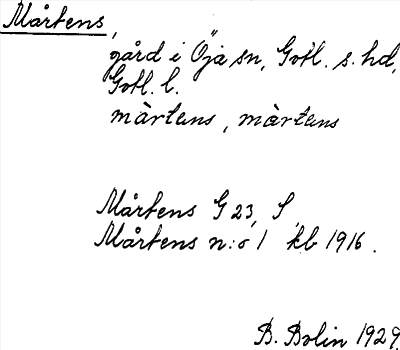 Mårtens,
gård i Öja sn, Gotl. s. hd,
Gotl. l.
màrtens, màrtens
Mårtens G 23, S
Mårtens n:o 1 kb 1916.
B. Bolin 1929.